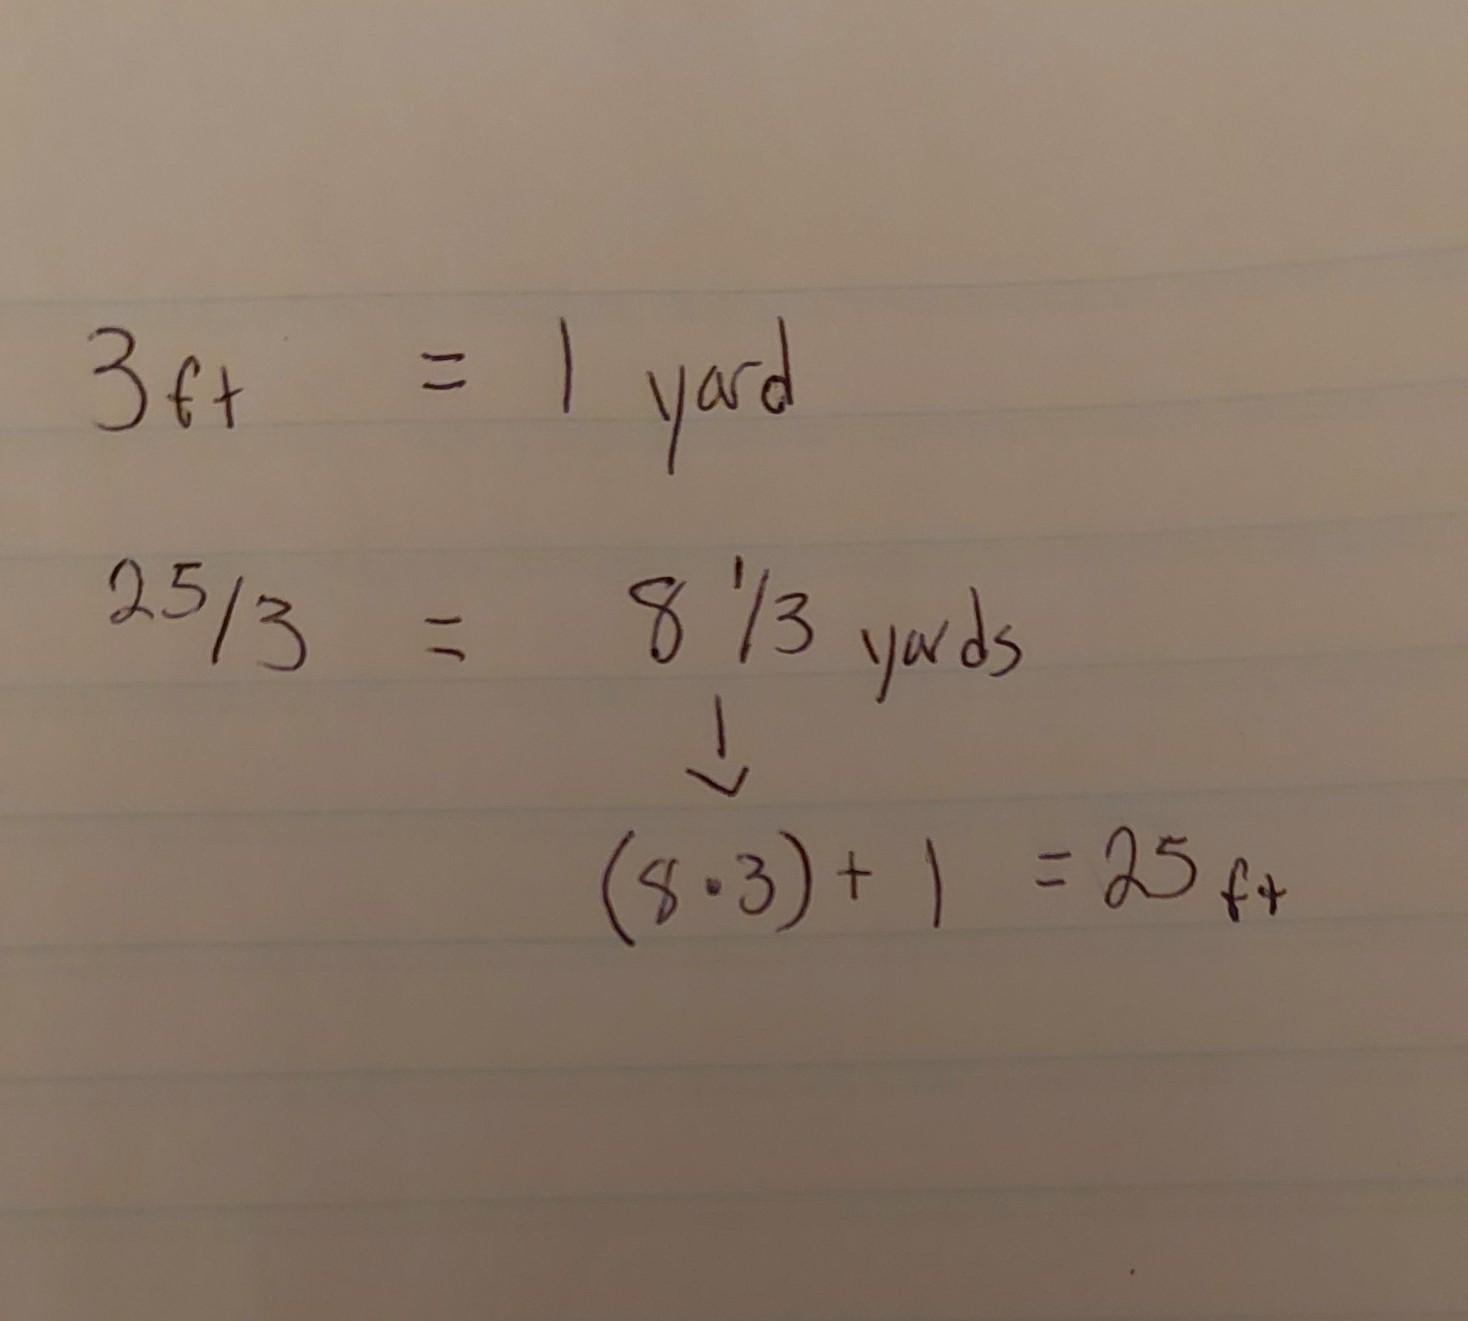 3ft = 1 yard
25/3 = 8 1/3 yards
↓
(8·3) + 1 = 25 ft